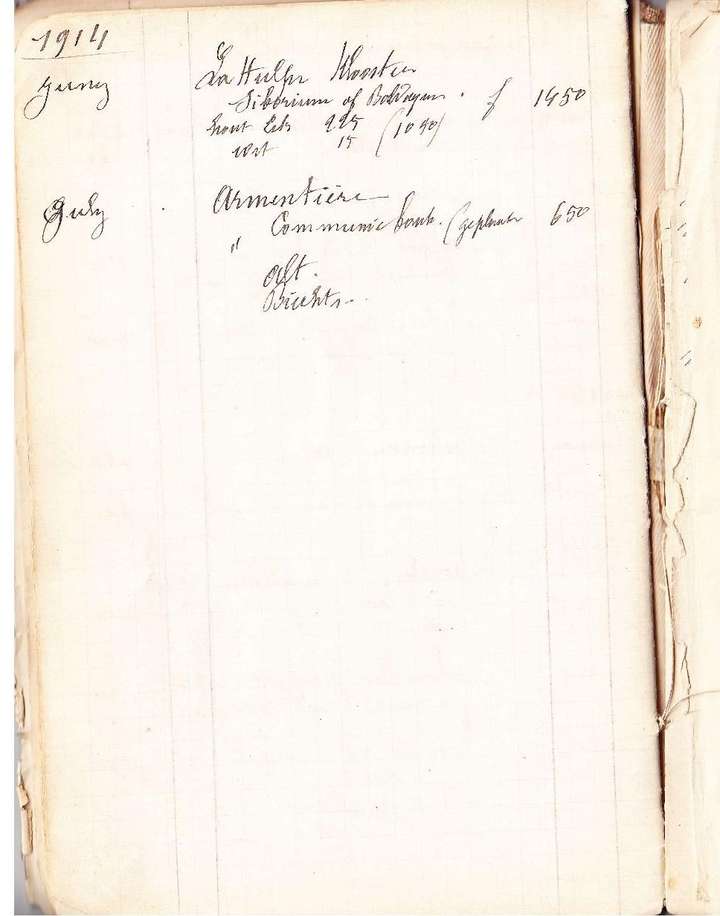 1914
Juny La Hulpe Klooster
Siborium of Baldaquin. f 1450
hout Lits 225 (1050)
wit 15
July Armentière
" Communie bank. (geplaats 650
Aft.
Biechts.